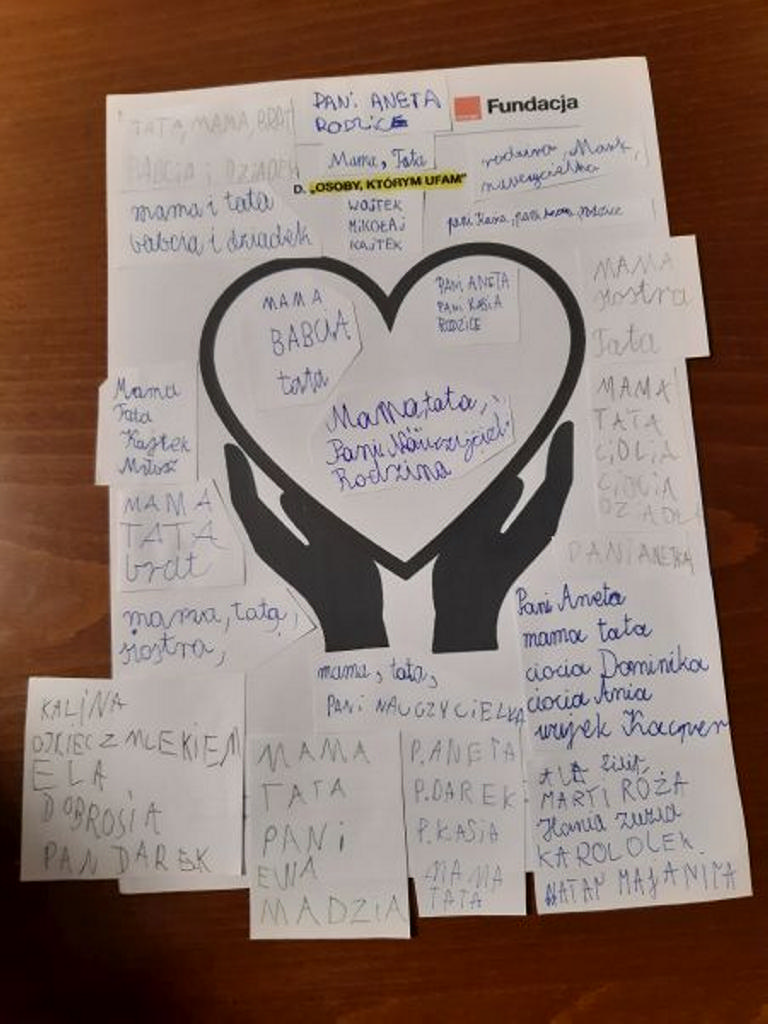 TATA, MAMA, BRAT
BABCIA i DZIADEK
PANI ANETA
RODZICE
Fundacja
Mama, Tata
D. „OSOBY, KTÓRYM UFAM”
rodzina, Mark,
nauczycielka
mama i tata
babcia i dziadek
WOJTEK
MIKOŁAJ
KAJTEK
pani Kasia, pani Aneta, rodzice
MAMA
siostra
Tata
MAMA
BABCIA
tata
PANI ANETA
PANI KASIA
RODZICE
Mama
Tata
Kajtek
Miłosz
Mama, tata,
Pani Nauczyciel
Rodzina
MAMA
TATA
CIOCIA
DZIAD
MAMA
TATA
brat
PANI ANETKA
mama, tata,
siostra,
Pani Aneta
mama tata
ciocia Dominika
ciocia Ania
wujek Kacper
mama, tata,
PANI NAUCZYCIELKA
KALINA
OJCIEC Z MLEKIEM
ELA
DOBROSIA
PAN DAREK
MAMA
TATA
PANI
EWA
MADZIA
P. ANETA
P. DAREK
P. KASIA
MAMA
TATA
ALA
MARTI RÓŻA
Hania zuzia
KAROL OLEK.
NATAN MAJA NINA